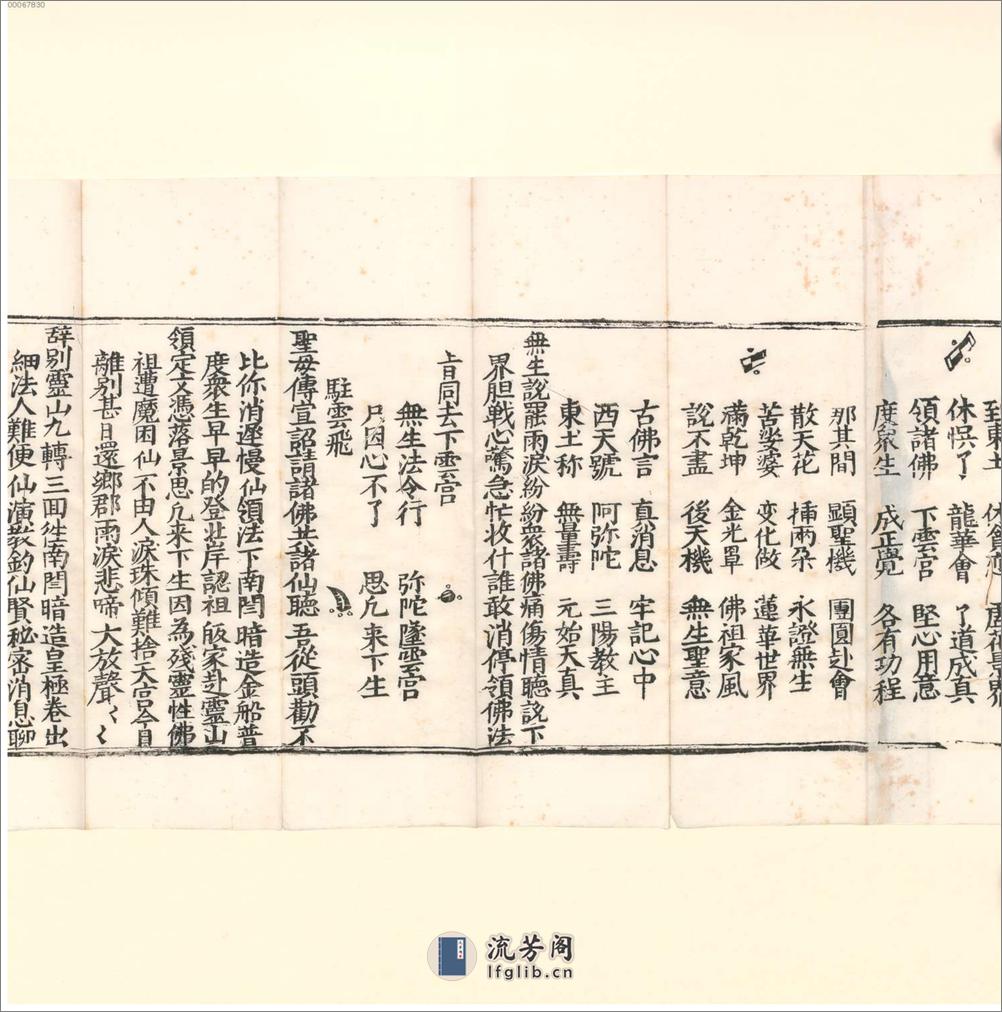 00067830
到東土
休悞了 龍華會 了道成真
領諸佛 下雲宮 堅心用意
度衆生 成正覺 各有功程
那其間 顕聖機 團圓赴會
散天花 揷兩朶 永證無生
苦娑婆 变化做 蓮華世界
滿乾坤 金光罩 佛祖家風
說不盡 後天機 無生聖意
古佛言 真消息 牢記心中
西天號 阿弥陀 三陽教主
東土称 無量壽 元始天真
無生說罷雨淚紛紛衆諸佛痛傷情聽説下
界胆戰心驚急忙收什誰敢消停領佛法
㫖同去下雲宮
無生法令行 弥陀墜雲宮
只因心不了 思凢来下生
駐雲飛
聖母傳宣詔請諸佛共諸仙聽吾從頭勸不
比你消遲慢仙領法下南閻暗造金船普
度衆生早早的登北岸認祖皈家赴靈山
領定文憑落景思凢来下生因為残靈性佛
祖遭魔困仙不由人淚珠傾難捨天宫今日
離別甚日還鄉郡雨淚悲啼大放聲〻〻
辞别靈山九轉三回徃南閻暗造皇極卷出
細法人難使仙演教釣仙賢秘宻消息聊
流芳阁
lfglib.cn